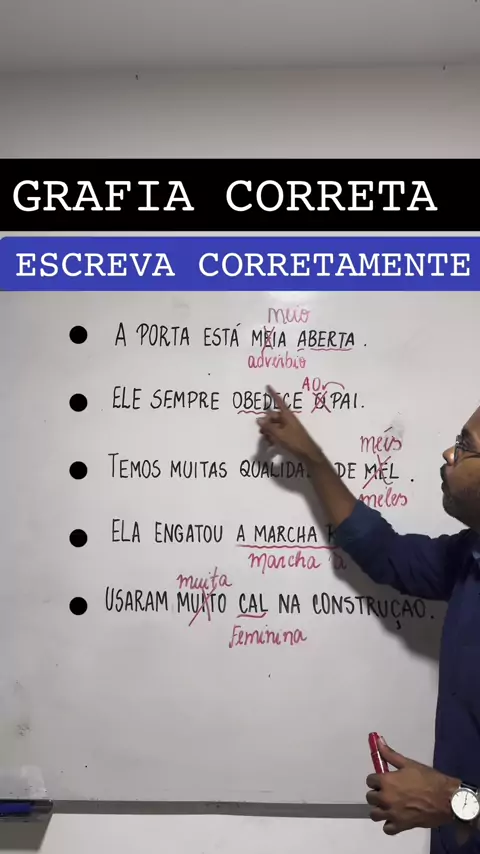 GRAFIA CORRETA
ESCREVA CORRETAMENTE
meio
A PORTA ESTÁ MEIA ABERTA.
advérbio
AO
ELE SEMPRE OBEDECE O PAI.
méis
TEMOS MUITAS QUALIDA DE MEL.
meles
ELA ENGATOU A MARCHA
marcha a
muita
USARAM MUITO CAL NA CONSTRUÇÃO.
Feminina